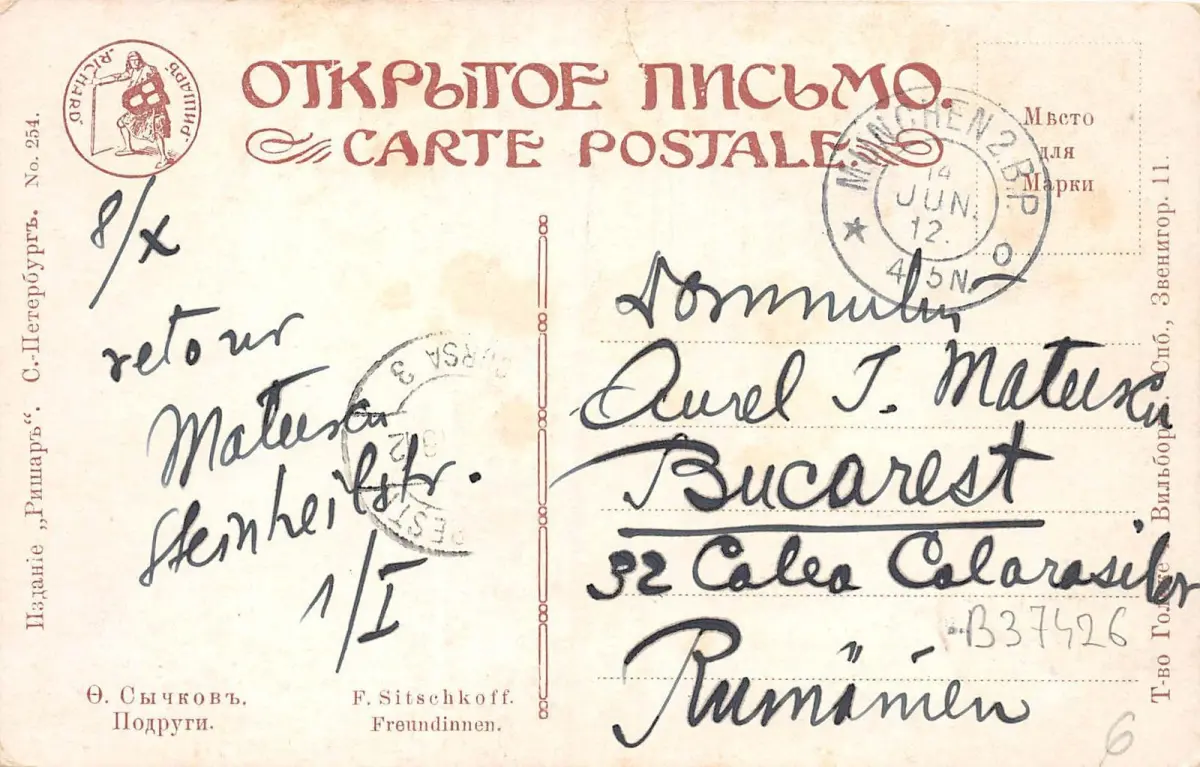 "RICHARD" "РИШАРЪ"
ОТКРЫТОЕ ПИСЬМО.
CARTE POSTALE.
Мѣсто
для
Марки
MÜNCHEN 2.B.P.
14
JUN.
12.
4-5N.
8/X
retour
Mateescu
Steinheilstr.
1/I
BURSA 3
Domnului
Aurel I. Mateescu
Bucarest
32 Calea Calarasilor
Rumänien
B37426
6
Ѳ. Сычковъ.
Подруги.
F. Sitschkoff.
Freundinnen.
Изданіе „Ришаръ“. С.-Петербургъ. No. 254.
Т-во Голике Вильборг. Спб., Звенигор. 11.